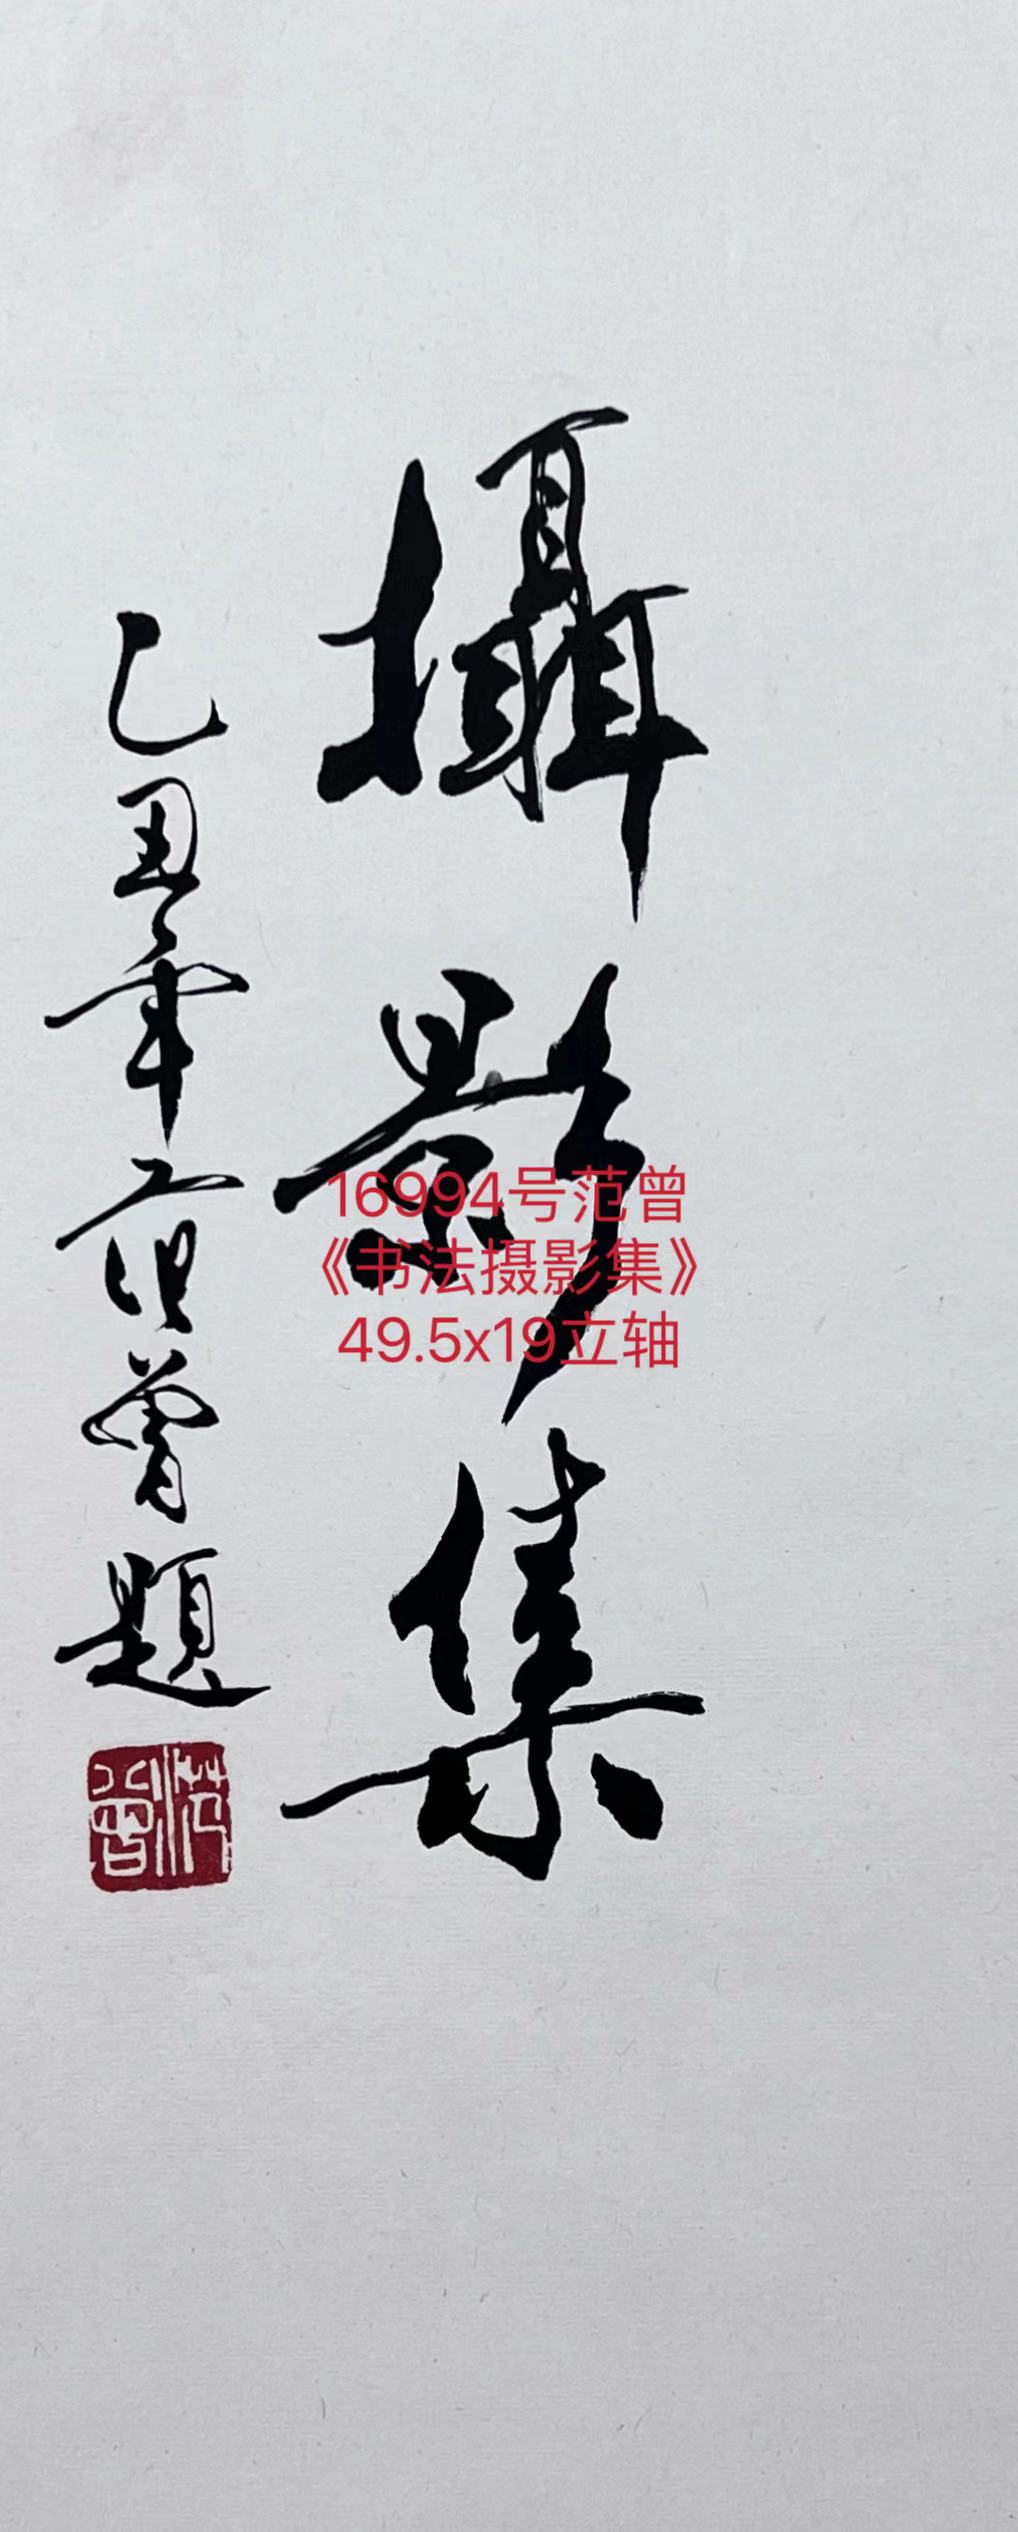 攝影集
己丑年 范曾題
范曾
16994号范曾
《书法摄影集》
49.5x19立轴